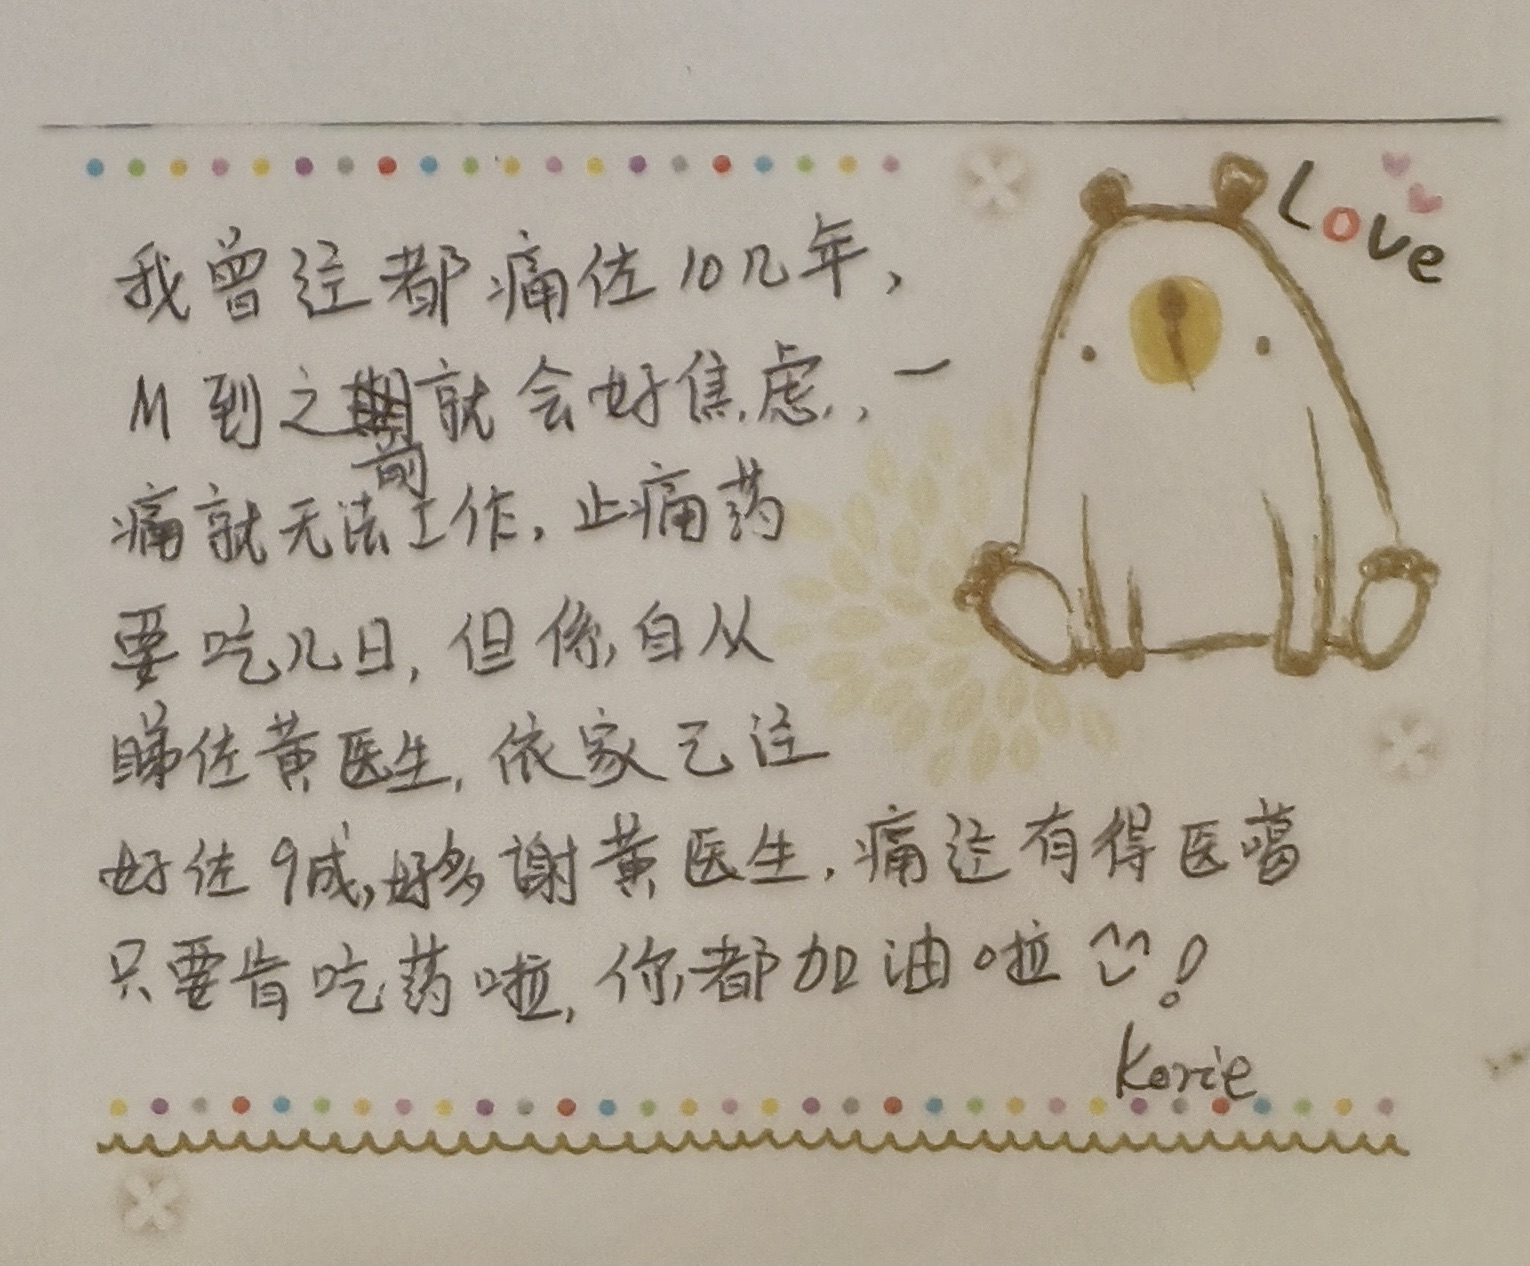 Love
我曾经都痛佐10几年，
M到之前就会好焦虑，一
痛就无法工作，止痛药
要吃几日，但係自从
睇佐黄医生，依家已经
好佐9成，好多谢黄医生，痛经有得医噶
只要肯吃药啦，你都加油啦^^！
Korie